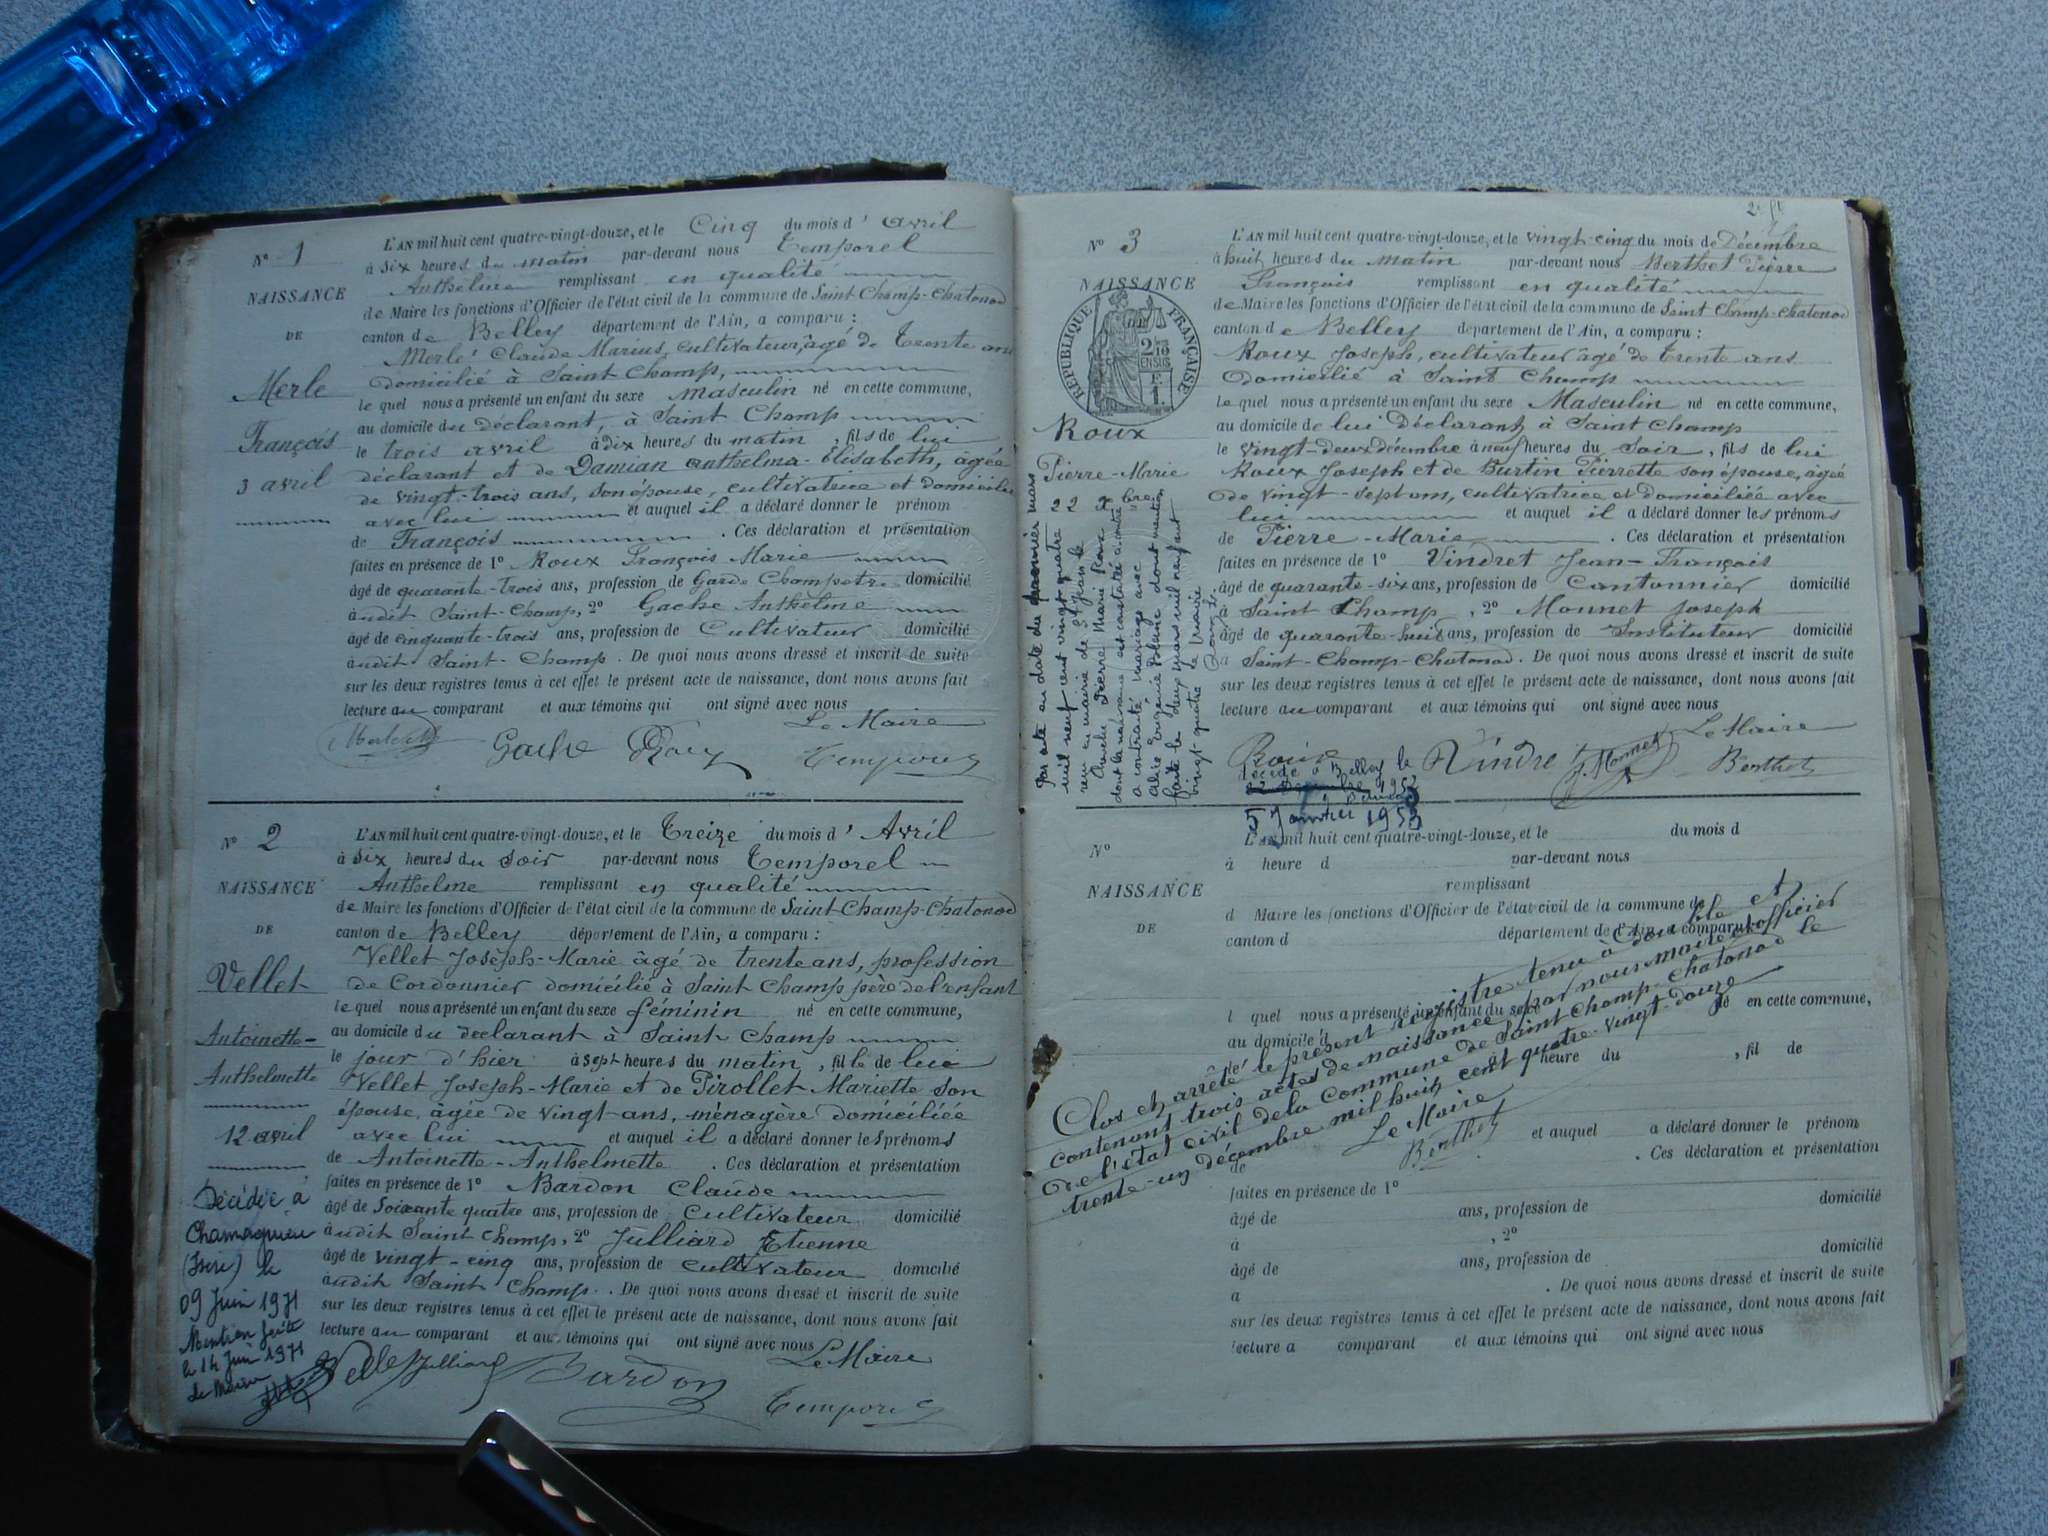 N° 1
NAISSANCE
DE
Merle
François
3 avril
L'AN mil huit cent quatre-vingt-douze, et le Cinq du mois d' avril
à six heures du matin par-devant nous Temporel
Anthelme remplissant en qualité
de Maire les fonctions d'Officier de l'état civil de la commune de Saint Champ-Chatonod
canton de Belley département de l'Ain, a comparu :
Merle Claude Marius, cultivateur, âgé de trente ans
domicilié à Saint Champ,
le quel nous a présenté un enfant du sexe masculin né en cette commune,
au domicile du déclarant, à Saint Champ
le trois avril à dix heures du matin , fils de lui
déclarant et de Damian Anthelma-Elisabeth, âgée
de vingt-trois ans, son épouse, cultivatrice et domiciliée
avec lui et auquel il a déclaré donner le prénom
de François . Ces déclaration et présentation
faites en présence de 1° Roux François Marie
âgé de quarante-trois ans, profession de Garde Champetre domicilié
audit Saint-Champ, 2° Gache Anthelme
âgé de cinquante-trois ans, profession de Cultivateur domicilié
audit Saint-Champ. De quoi nous avons dressé et inscrit de suite
sur les deux registres tenus à cet effet le présent acte de naissance, dont nous avons fait
lecture au comparant et aux témoins qui ont signé avec nous
Le Maire
Gache Roux Temporel
N° 2
NAISSANCE
DE
Vellet
Antoinette-
Anthelmette
12 avril
Décédée à
(Isère) le
09 Juin 1971
Mention faite
le 14 Juin 1971
Le Maire
L'AN mil huit cent quatre-vingt-douze, et le Treize du mois d' Avril
à six heures du soir par-devant nous Temporel
Anthelme remplissant en qualité
de Maire les fonctions d'Officier de l'état civil de la commune de Saint Champ-Chatonod
canton de Belley département de l'Ain, a comparu :
Vellet Joseph-Marie âgé de trente ans, profession
de Cordonnier domicilié à Saint Champ père de l'enfant
le quel nous a présenté un enfant du sexe féminin né en cette commune,
au domicile du declarant à Saint Champ
le jour d'hier à sept heures du matin , fille de lui
Vellet Joseph-Marie et de Pirollet Mariette son
épouse, âgée de vingt ans, ménagère domiciliée
avec lui et auquel il a déclaré donner les prénoms
de Antoinette-Anthelmette . Ces déclaration et présentation
faites en présence de 1° Bardon Claude
âgé de Soixante quatre ans, profession de Cultivateur domicilié
audit Saint Champ, 2° Julliard Etienne
âgé de vingt-cinq ans, profession de cultivateur domicilié
audit Saint Champ . De quoi nous avons dressé et inscrit de suite
sur les deux registres tenus à cet effet le présent acte de naissance, dont nous avons fait
lecture au comparant et aux témoins qui ont signé avec nous
Le Maire
Vellet Julliard Bardon Temporel
N° 3
NAISSANCE
RÉPUBLIQUE FRANÇAISE
Roux
Pierre-Marie
22 Xbre
L'AN mil huit cent quatre-vingt-douze, et le vingt-cinq du mois de Décembre
à huit heures du matin par-devant nous Berthet Pierre
François remplissant en qualité
de Maire les fonctions d'Officier de l'état civil de la commune de Saint Champ-Chatonod
canton de Belley département de l'Ain, a comparu :
Roux Joseph, cultivateur âgé de trente ans
domicilié à Saint Champ
le quel nous a présenté un enfant du sexe Masculin né en cette commune,
au domicile de lui Déclarant à Saint Champ
le vingt-deux décembre à neuf heures du Soir , fils de lui
Roux Joseph et de Burtin Pierrette son épouse, âgée
de vingt-sept ans, cultivatrice et domiciliée avec
lui et auquel il a déclaré donner les prénoms
de Pierre-Marie . Ces déclaration et présentation
faites en présence de 1° Vindret Jean-François
âgé de quarante-six ans, profession de Cantonnier domicilié
à Saint Champ , 2° Monnet Joseph
âgé de quarante-huit ans, profession de Instituteur domicilié
à Saint-Champ-Chatonod. De quoi nous avons dressé et inscrit de suite
sur les deux registres tenus à cet effet le présent acte de naissance, dont nous avons fait
lecture au comparant et aux témoins qui ont signé avec nous
Le Maire
Roux Vindret J. Monnet Berthet
décédé à Belley le
5 Janvier 1953
Par acte en date du premier mars
mil neuf cent vingt quatre
Pierre Marie Roux
dont la naissance est constatée ci-contre
a contracté mariage avec
dont mention
faite le deux mars mil neuf cent
vingt quatre le Maire
N°
NAISSANCE
DE
L'AN mil huit cent quatre-vingt-douze, et le du mois d
à heure d par-devant nous
remplissant
d Maire les fonctions d'Officier de l'état civil de la commune de
canton d département de l'Ain, a comparu :
l quel nous a présenté un enfant du sexe né en cette commune,
au domicile d
le à heure du , fil de
et auquel a déclaré donner le prénom
de . Ces déclaration et présentation
faites en présence de 1°
âgé de ans, profession de domicilié
à , 2°
âgé de ans, profession de domicilié
a . De quoi nous avons dressé et inscrit de suite
sur les deux registres tenus à cet effet le présent acte de naissance, dont nous avons fait
lecture a comparant et aux témoins qui ont signé avec nous
Clos et arrêté le présent registre tenu à double et
contenant trois actes de naissance par nous maire et officier
de l'état civil de la Commune de Saint Champ-Chatonod le
trente-un décembre mil huit cent quatre-vingt-douze
Le Maire
Berthet